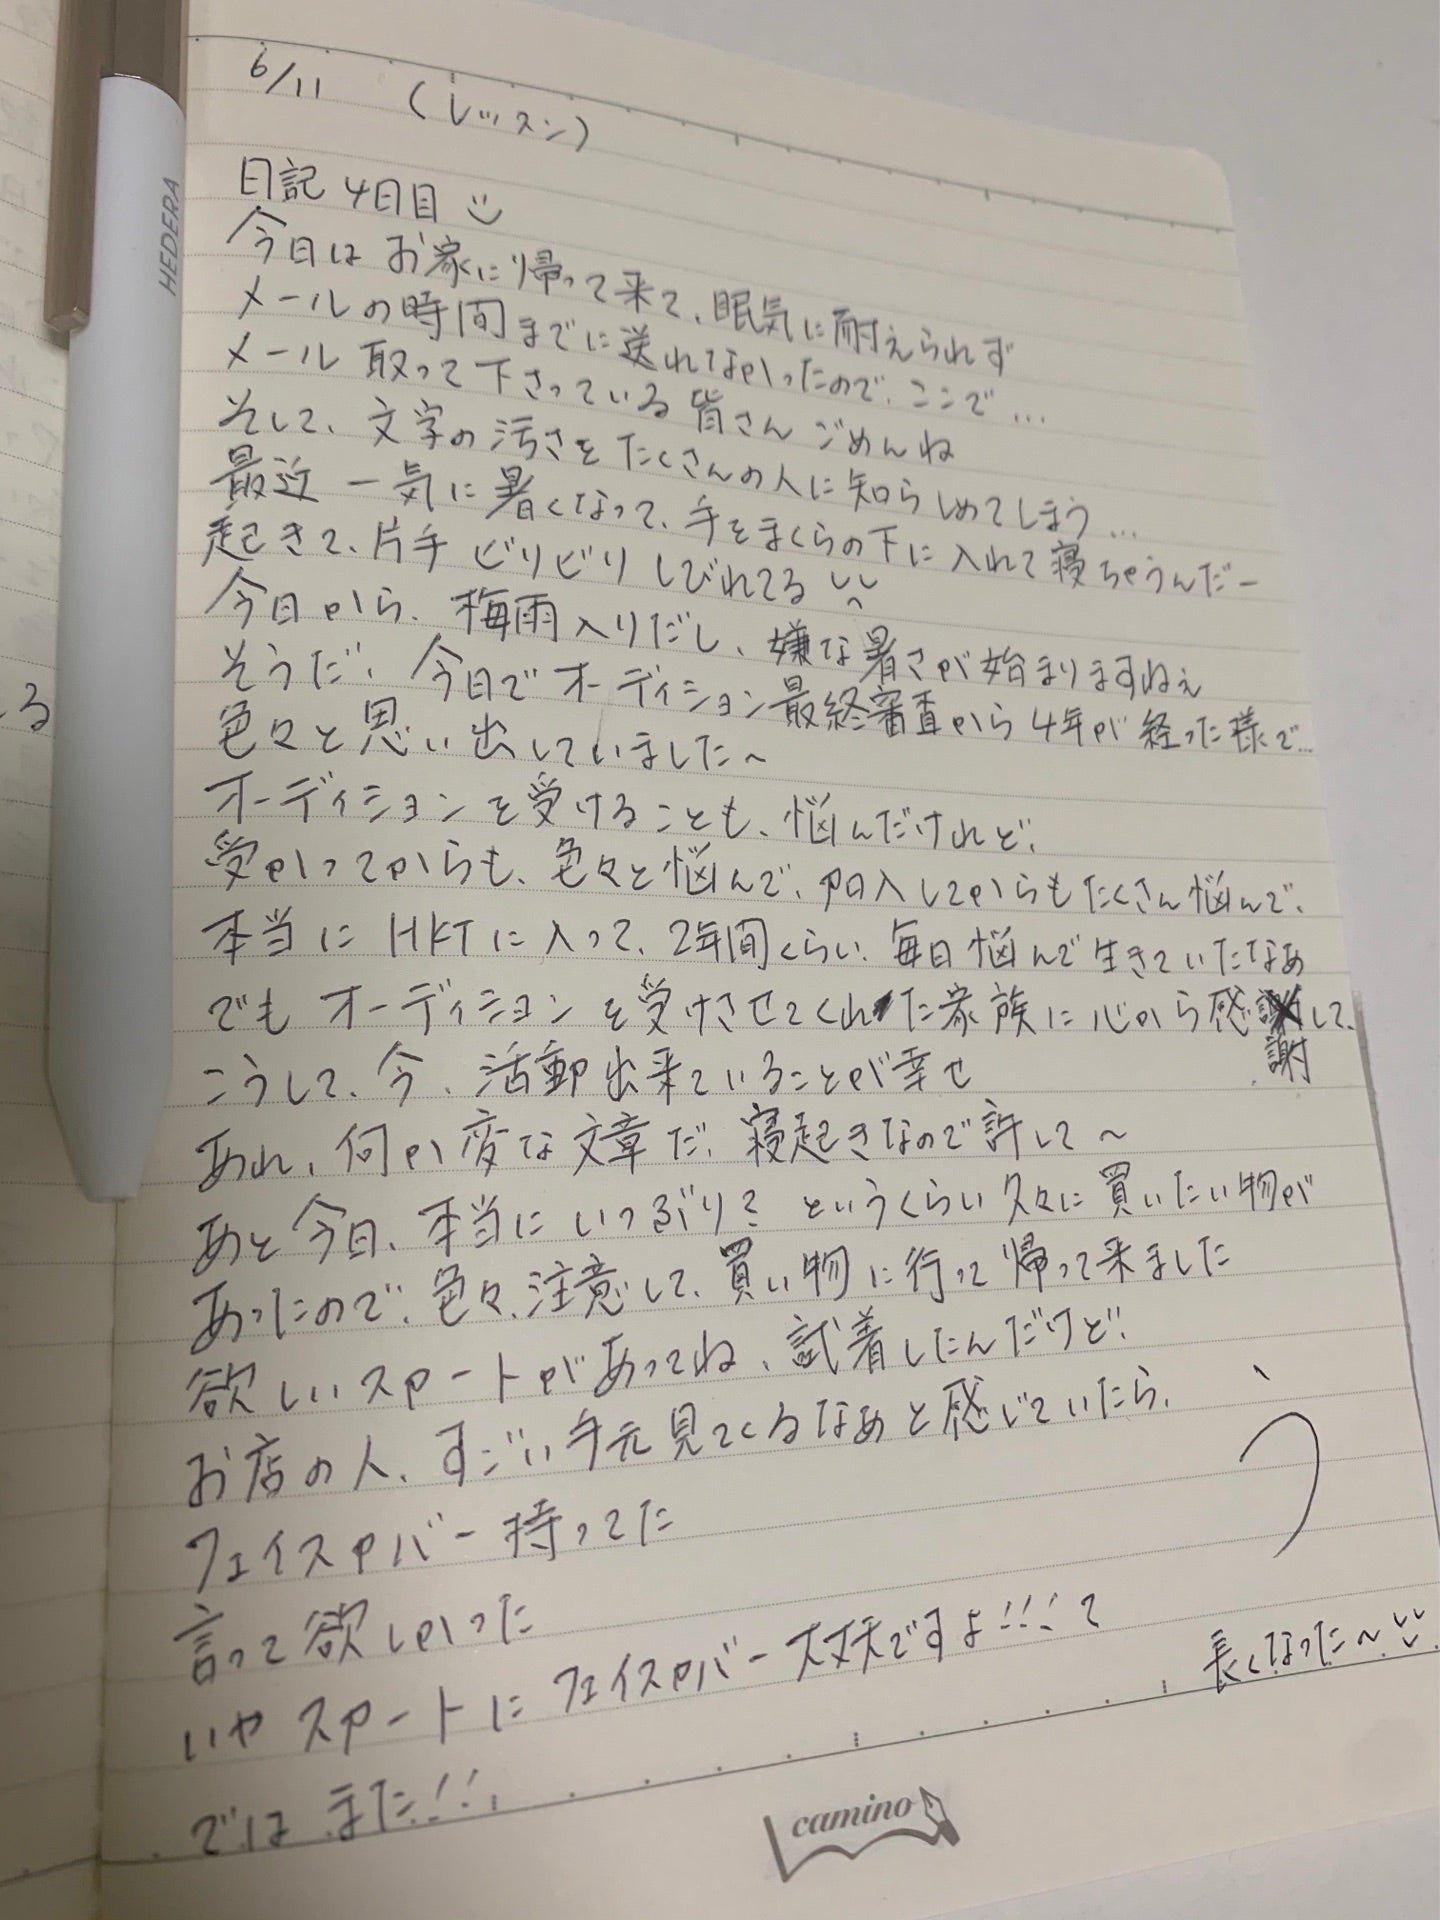 6/11 (レッスン)
日記 4日目
今日は お家に帰って来て、眠気に耐えられず
メールの時間までに送れてなかったので、ここで…
メール 取って下さっている 皆さん ごめんね
そして、文字の汚さを たくさんの人に知らしめてしまう…
最近 一気に暑くなって、手をまくらの下に入れて寝ちゃうんだー
起きて、片手 ビリビリ しびれてる
今日から、梅雨入りだし、嫌な暑さが始まりますねぇ
そうだ、今日でオーディション最終審査から4年が経った様で…
色々と思い出していました〜
オーディションを受けることも、悩んだけれど、
受かってからも、色々と悩んで、加入してからもたくさん悩んで、
本当に HKTに入って、2年間くらい、毎日悩んで生きていたなぁ
でも オーディションを受けさせてくれた家族に心から感謝して、
こうして、今、活動出来ていることが幸せ
あれ、何か変な文章だ、寝起きなので許して〜
あと今日、本当に いつぶり? というくらい久々に買いたい物が
あったので、色々、注意して、買い物に行って帰って来ました
欲しいスカートがあってね、試着したんだけど、
お店の人、すごい手元見てくるなぁと感じていたら、
フェイスカバー持ってた
言って欲しかった
いや スカートにフェイスカバー大丈夫ですよ!!!て
長くなった〜
では また!!
camino
HEDERA
る